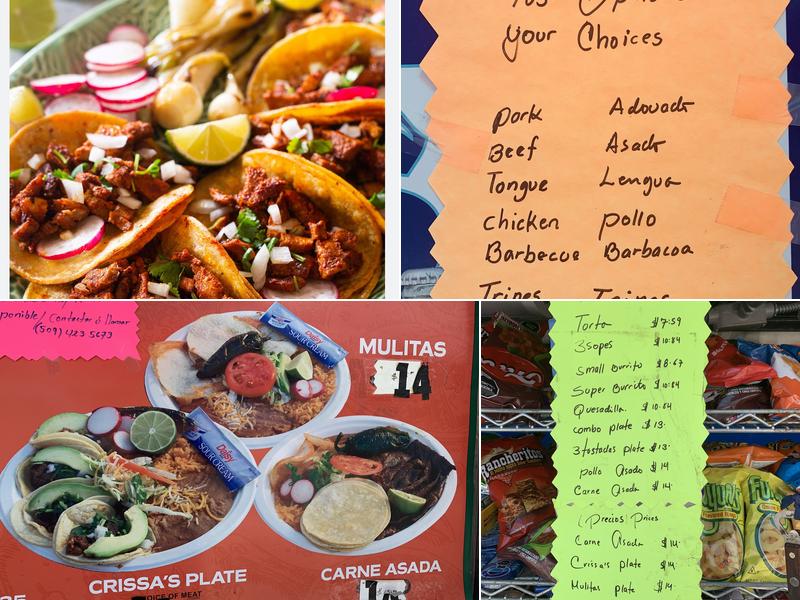 your Choices
Pork Adovado
Beef Asado
Tongue Lengua
chicken pollo
Barbecue Barbacoa
Tripes Tripas
ponible/ contactar ó llamar
(509) 423 5673
Daisy
SOUR CREAM
MULITAS
14
Daisy
SOUR CREAM
CRISSA'S PLATE
OICE OF MEAT
CARNE ASADA
Torta $7.59
3sopes $10.84
small Burrito $8.67
Super Burrito $10.84
Quesadilla $10.84
combo plate $13.
3tostades plate $13.
pollo Asado $14
Carne Asada $14
(precios) Prices
Carne Asada $14.
Crissa's plate $14.
Mulitas plate $14.
Rancheritos